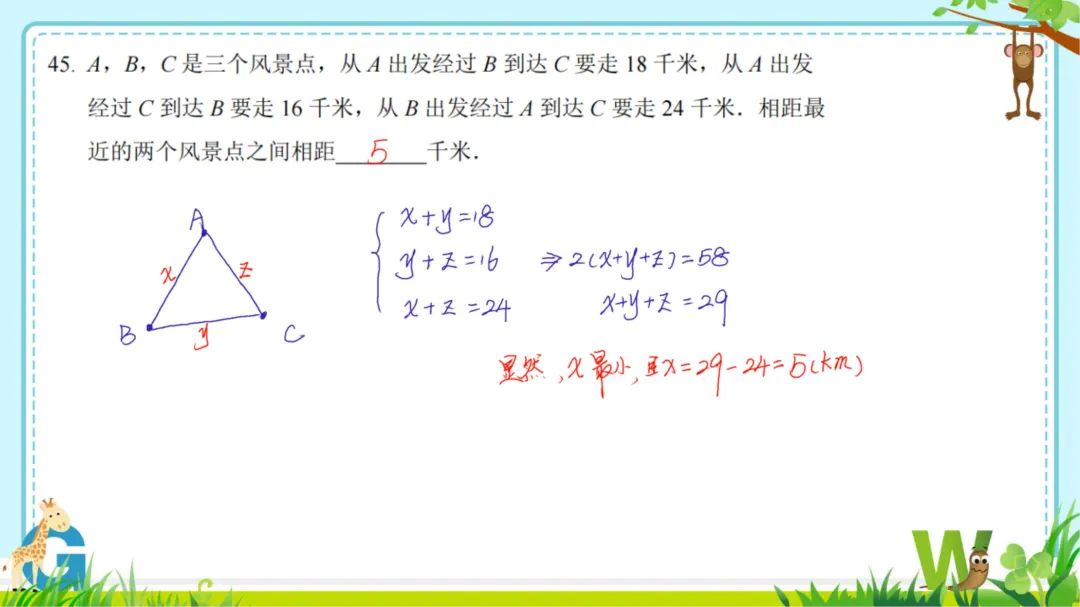 45. A，B，C是三个风景点，从A出发经过B到达C要走18千米，从A出发
经过C到达B要走16千米，从B出发经过A到达C要走24千米．相距最
近的两个风景点之间相距 5 千米．
A
x
z
B
y
C
x+y=18
y+z=16
x+z=24
⇒2(x+y+z)=58
x+y+z=29
显然，x最小，且x=29-24=5(km)
G
W